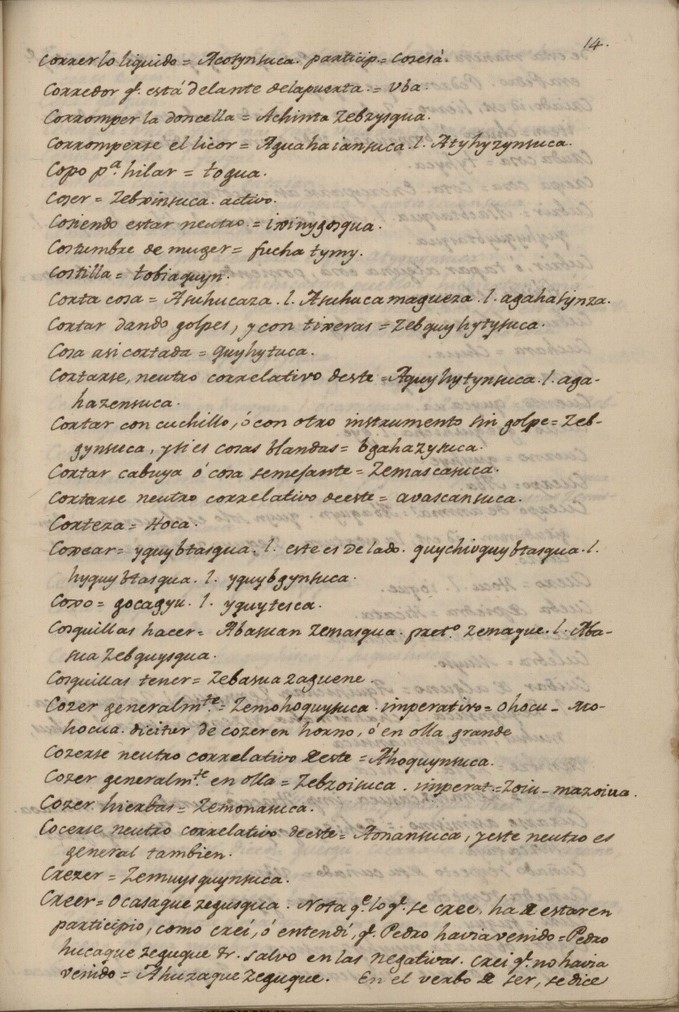 14.
Correr lo liquido = Acosynsuca. particip = Cosesà.
Corredor q.^e está delante de la puerta. = Uba.
Corromper la doncella = Achinta Zebzysqua.
Corromperse el licor = Aguahaiansuca. l. Atyhyzynsuca.
Copo p.^a hilar = togua.
Coser = Zebxinsuca. activo.
Cosiendo estar neutro = ixinygosqua.
Costumbre de muger = fucha tymy.
Costilla = tobiaquyn.
Corta cosa = Asuhucaza. l. Asuhuca magueza. l. agahasynza.
Cortar dando golpes, y con tixeras = Zebquyhytysuca.
Cosa asi cortada = quyhytuca.
Cortarse, neutro correlativo deste = Aquyhytynsuca. l. aga-
hazensuca.
Cortar con cuchillo, ó con otro instrumento sin golpe = Zeb-
gynsuca, y si es cosas blandas = bgahazysuca.
Cortar cabuya ó cosa semejante = Zemascasuca.
Cortarse neutro correlativo deeste = avascansuca.
Corteza = Hoca.
Coxear = yquybtasqua. l. este es de lado. quychiuquybtasqua. l.
hyquybtasqua. l. yquybgynsuca.
Coxo = gocagyu. l. yquytesca.
Cosquillas hacer = Abasuan Zemasqua. pret.^o zemaque. l. Aba-
sua Zebquysqua.
Cosquillas tener = Zebasua zaguene.
Cozer generalm.^te = Zemohoquysuca. imperativo = ohocu - Mo-
hocua. dicitur de cozer en horno, ó en olla grande
Cozerse neutro correlativo deeste = Ahoquynsuca.
Cozer generalm.^te en olla = Zebzoisuca. imperat = Zoiu - mazoiua.
Cozer hierbas = Zemonasuca.
Cocerse neutro correlativo deeste = Aonansuca, y este neutro es
general tambien.
Crezer = Zemuysquynsuca.
Creer = Ocasaque zegusqua. Nota q.^e lo q.^e se cree, ha de estar en
participio, como creí, ó entendí, q.^e Pedro havia venido = Pedro
hucaque zeguque &. salvo en las negativas. crei q.^e no havia
venido = Ahuzaque zeguque. En el verbo de ser, se dice